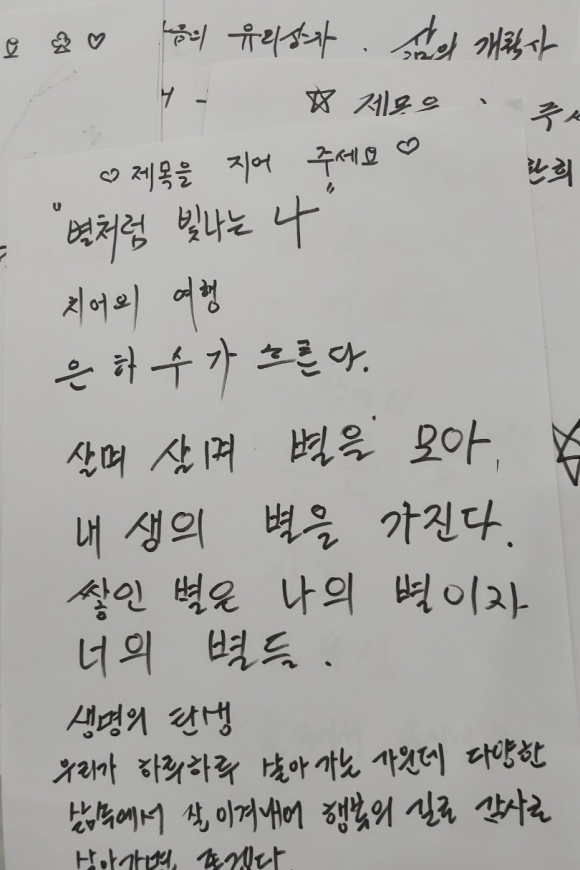 요 ☆ ♡
유리상자 . 삶의 개척사
☆ 제목은
♡ 제목을 지어 주세요 ♡
"별처럼 빛나는 나"
치어의 여행
은하수가 흐른다.
살며 살며 별을 모아,
내 생의 별을 가진다.
쌓인 별은 나의 별이자
너의 별들.
생명의 탄생
우리가 하루하루 살아 가는 가운데 다양한
삶속에서 잘 이겨내어 행복의 길로 감사로
살아가면 좋겠다